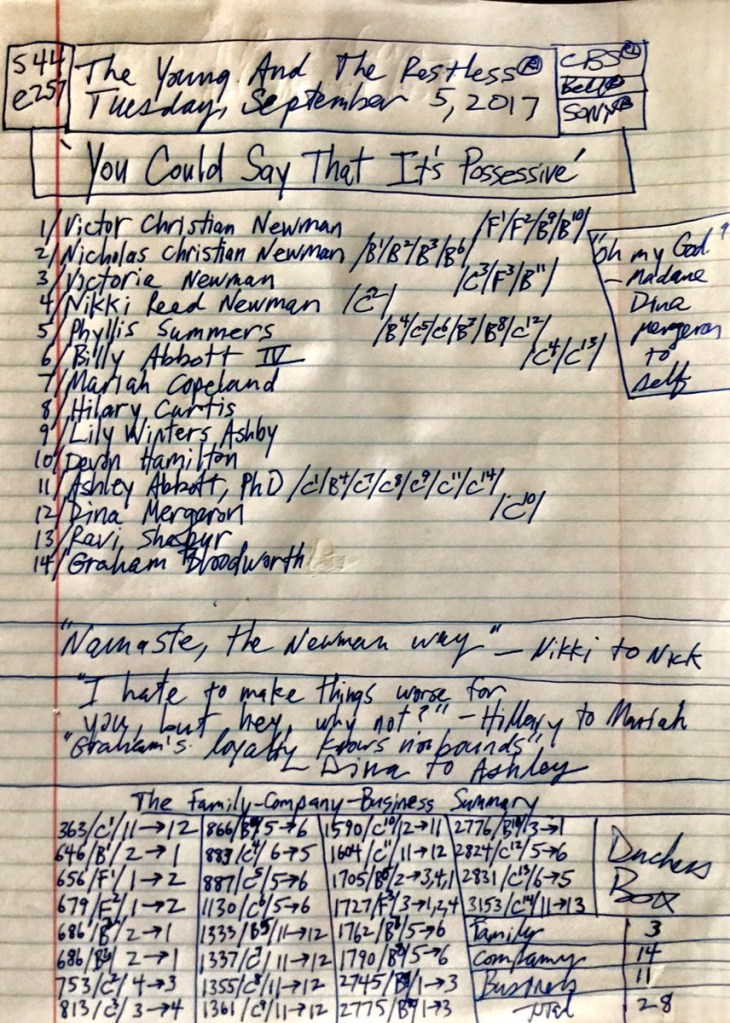 S44
e257
The Young And The Restless®
Tuesday, September 5, 2017
CBS®
Bell®
SONY®
'You Could Say That It's Possessive'
1/Victor Christian Newman /F¹/F²/B⁹/B¹⁰/
2/Nicholas Christian Newman /B¹/B²/B³/B⁶/
3/Victoria Newman /C³/F³/B¹¹/
4/Nikki Reed Newman /C²/
5/Phyllis Summers /B⁴/C⁵/C⁶/B⁷/B⁸/C¹²/
6/Billy Abbott IV /C⁴/C¹³/
7/Mariah Copeland
8/Hilary Curtis
9/Lily Winters Ashby
10/Devon Hamilton
11/Ashley Abbott, PhD /C¹/B⁴/C⁷/C⁸/C⁹/C¹¹/C¹⁴/
12/Dina Mergeron /C¹⁰/
13/Ravi Shapur
14/Graham Bloodworth
"Oh my God"
- Madame
Dina
Mergeron
to
self
"Namaste, the Newman way" - Nikki to Nick
"I hate to make things worse for
you, but hey, why not?" - Hillary to Mariah
"Graham's loyalty knows no bounds"
- Dina to Ashley
The Family-Company-Business Summary
363/C¹/11→12 866/5→6 1590/C¹⁰/2→11 2776/3→1
646/B¹/2→1 883/C⁴/6→5 1604/C¹¹/11→12 2824/C¹²/5→6
656/F¹/1→2 887/C⁵/5→6 1705/2→3,4,1 2831/C¹³/6→5
679/F²/1→2 1130/C⁶/5→6 1727/F³/3→1,2,4 3153/C¹⁴/11→13
686/2→1 1333/B⁵/11→12 1762/5→6 Family 3
686/2→1 1337/C⁷/11→12 1790/5→6 Company 14
753/C²/4→3 1355/C⁸/11→12 2745/1→3 Business 11
813/C³/3→4 1361/C⁹/11→12 2775/1→3 Total 28
Duchess
Box